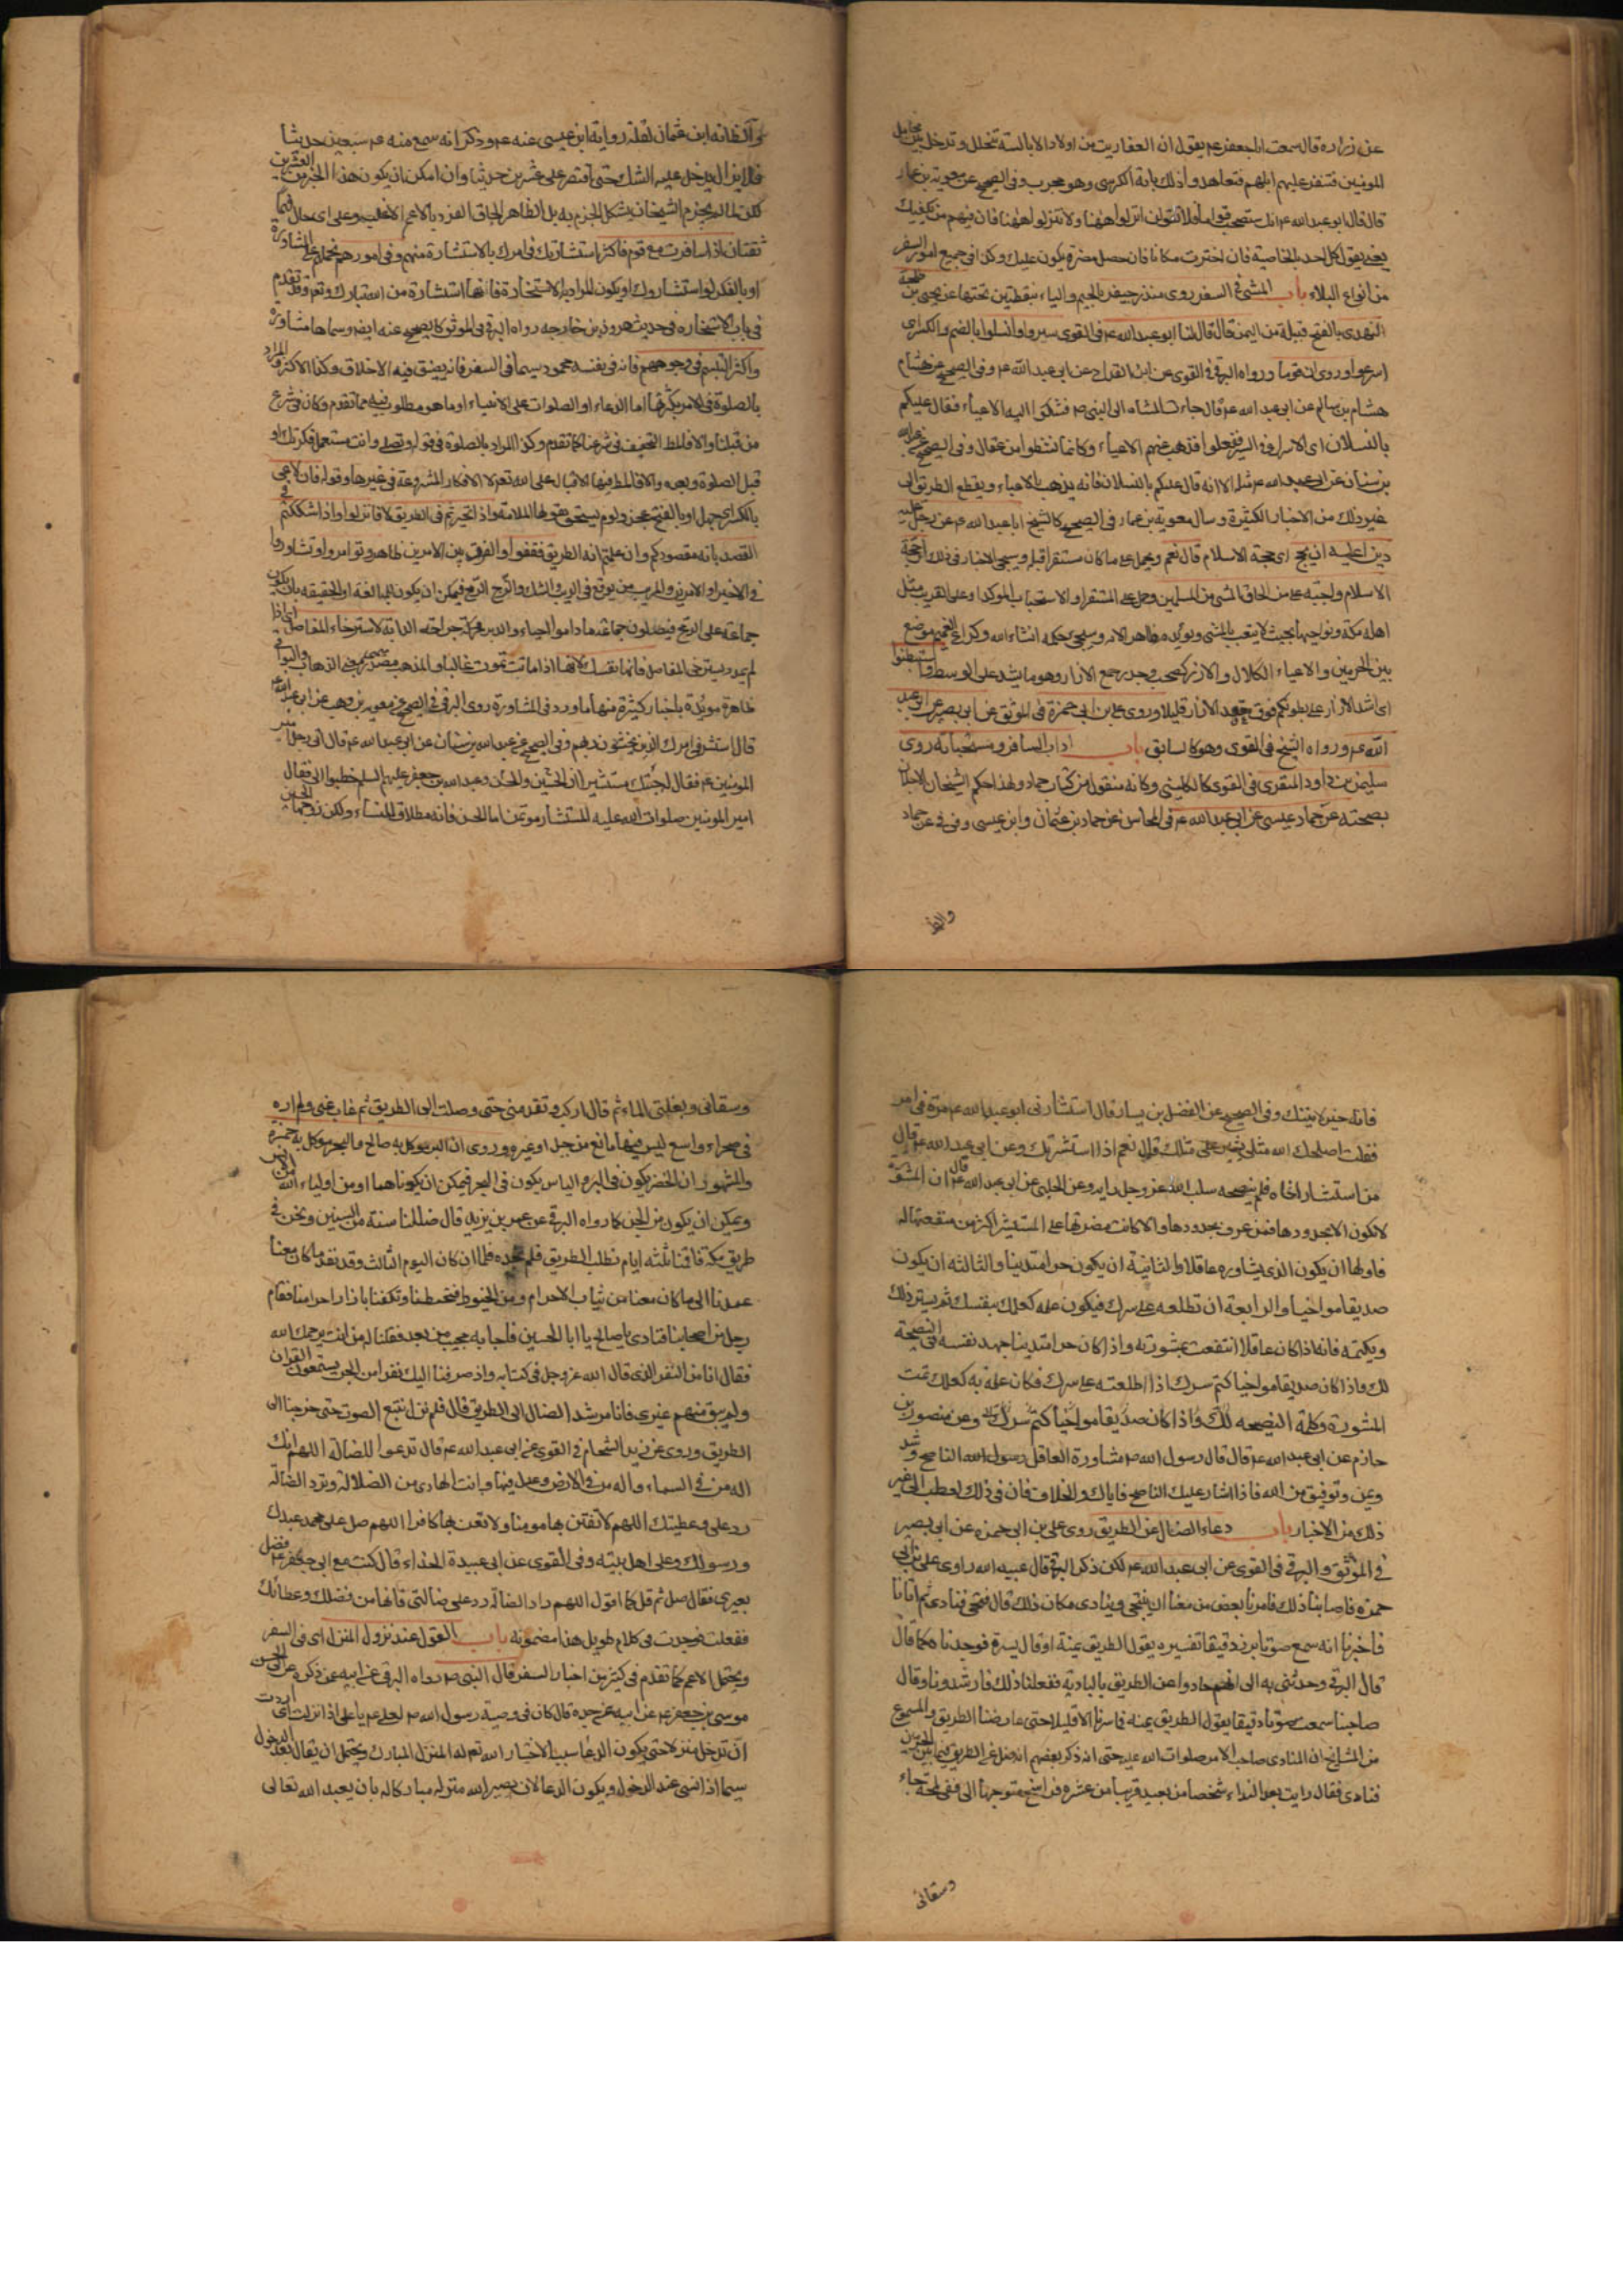 عن زرارة قال سمعت ابا جعفر ع يقول ان العفاريت من اولاد الابالسة تتخلل وتدخل بين محامل
المومنين فتنفر عليهم ابلهم فتعاهدوا ذلك باية الكرسى وهو مجرب وفى الصحيح عن معوية بن عمار
قال قال ابو عبد الله ع انك ستصحب قواما فلا تقولن انزلوا ههنا ولا تنزلوا ههنا فان فيهم من يكفيك
يعنى يقول كل احد بالخاصية فان اخترت مكانا فان حصل مضرة يكون عليك وكذا فى جميع امور السفر
من انواع البلاء باب المشى فى السفر روى منذر جيفر بالجيم والياء بنقطتين تحتها عن يحيى بن طلحة
النهدى بالفتح قبيلة من اليمن قال قال لنا ابو عبد الله ع فى القوى سيروا وانسلوا بالضم والكسر اى
اسرعوا وروى ان قوما ورواه البرقى فى القوى عن ابن القداح عن ابى عبد الله ع وفى الصحيح عن هشام
هشام بن سالم عن ابى عبد الله ع قال جاءت المشاة الى النبى ص فشكوا اليه الاعياء فقال عليكم
بالنسلان اى الاسراع فى السير ففعلوا فذهب عنهم الاعياء وكانما نشطوا من عقال وفى الصحيح عن عبد الله
بن سنان عن ابى عبد الله ع مثله الا انه قال عليكم بالنسلان فانه يذهب بالاعياء ويقطع الطريق الى
غير ذلك من الاخبار الكثيرة وسال معوية بن عمار فى الصحيح كالشيخ ابا عبد الله ع عن رجل عليه
دين اعليه ان يحج اى حجة الاسلام قال نعم ويحمل على ما كان مستقرا قبله وسيجى الاخبار فى ذلك ان حجة
الاسلام واجبة على من اطاق المشى من المسلمين وحمل على المستقر او الاستحباب الموكد او على القريب مثل
اهل مكة ونواحيها بحيث لا يتعب بالمشى ويؤيده ظاهر الامر وسيجى بحكمه انشاء الله وكراع الغميم موضع
بين الحرمين والاعياء الكلال والازر كصحب وجدر جمع الازار وهو ما يشد على الوسط واستبطنوا
اى اشد الازار على بطونكم فوق عقد الازار قليلا وروى على بن ابى حمزة فى الموثق عن ابى بصير عن ابى عبد
الله ع ورواه الشيخ فى القوى وهو كالسابق باب اداب المسافر ومستحباته روى
سليمن بن داود المنقرى فى القوى كالكلينى وكانه منقول من كتاب حماد ولهذا حكم الشيخان الاجلان
بصحته عن حماد عيسى عن ابى عبد الله ع فى المحاسن عن حماد بن عثمان وابن عيسى وفى فى عن حماد
والظ
والظ انه ابن عثمان لقلة رواية ابن عيسى عنه ع وذكر انه سمع منه ع سبعين حديثا
فلم يزل يدخل عليه الشك حتى اقتصر على عشرين حديثا وان امكن ان يكون هذا الخبر من العشرين
لكن لما لم يجزم الشيخان يشكل الجزم به بل الظاهر الحاق الفرد بالاعم الاغلب وعلى اى حال فهما
ثقتان اذا سافرت مع قوم فاكثر استشارتك فى امرك بالاستشارة منهم وفى امورهم بحملهم على المشاورة
او بالفكر لو استشاروك او يكون المراد به الاستخارة فانها استشارة من الله تبارك وتع وقد تقدم
فى باب الاستخارة فى حديث هرون بن خارجه رواه البرقى فى الموثق كالصحيح عنه ايضا وسماها مشاورة
واكثر التبسم فى وجوههم فانه فى نفسه محمود سيما فى السفر فانه يضيق فيه الاخلاق وكذا الاكثر والمراد
بالصلوة فى الامر بكثرتها اما الدعاء او الصلوات على الانبياء او ما هو مطلوب فيه مما تقدم وكان فى شرع
من قبلنا والا فالمط التخفيف فى شرعنا كما تقدم وكذا المراد بالصلوة فى قوله وتصلى وانت مستعمل فكرتك او
قبل الصلوة وبعده والا فالمط فيها الاقبال على الله تع لا الافكار المشروعة فى غيرها وقوله فان لاعى
بالكسر اى جهل او بالفتح عجز ولوم يستحق بقولها الملامة واذا تحيرتم فى الطريق لا فانزلوا واذا شككتم فى
القصد بانه مقصودكم وان علمتم انه الطريق فقفوا والفرق بين الامرين ظاهر وتوامروا وتشاوروا
فى الاخير او الامرين والمريب من يوقع فى الريب الشك والزج الرمح فيمكن ان يكون للمبالغة او الحقيقة بان يكون
جماعة على الزج فيصلون جماعة ما داموا احياء والدبر محركة جراحة الدابة لاسترخاء المفاصل اى اذا
لم يمدد يسترخى المفاصل فانما نفسك لانها اذا ماتت تموت غالبا والمذهب مصدر ميمى بمعنى الذهاب والبواقى
ظاهرة مويدة باخبار كثيرة منها ما ورد فى المشاورة روى البرقى فى الصحيح عن معوية بن وهب عن ابى عبد الله ع
قال استشر فى امرك الذين يخشون ربهم وفى الصحيح عن عبد الله بن سنان عن ابى عبد الله ع قال اتى رجل امير
المومنين ع فقال له جئتك مستشيرا ان الحسن والحسين وعبد الله بن جعفر عليهم السلم خطبوا الى فقال
امير المومنين صلوات الله عليه المستشار موتمن اما الحسن فانه مطلاق للنساء ولكن زوجها الحسين
فانه خير لابنتك وفى الصحيح عن الفضل بن يسار قال استشارنى ابو عبد الله ع مرة فى امر
فقلت اصلحك الله مثلى يشير على مثلك قال نعم اذا استشرتك وعن ابى عبد الله ع قال
من استشار اخاه فلم ينصحه سلب الله عز وجل رايه وعن الحلبى عن ابى عبد الله ع قال ان المشورة
لا تكون الا بحدودها فمن عرفها بحدودها والا كانت مضرتها على المستشير اكثر من منفعتها له
فاولها ان يكون الذى يشاوره عاقلا والثانية ان يكون حرا متدينا والثالثة ان يكون
صديقا مواخيا والرابعة ان تطلعه على سرك فيكون علمه كعلمك بنفسك ثم يستر ذلك
ويكتمه فانه اذا كان عاقلا انتفعت بمشورته واذا كان حرا متدينا جهد نفسه فى النصيحة
لك واذا كان صديقا مواخيا كتم سرك اذا اطلعته على سرك فكان علمه به كعلمك تمت
المشورة وكملة النصيحه لك واذا كان صديقا مواخيا كتم سرك وعن منصور بن
حازم عن ابى عبد الله ع قال قال رسول الله ص مشاورة العاقل رسول الله الناصح رشد
ويمن وتوفيق من الله فاذا اشار عليك الناصح فاياك والخلاف فان فى ذلك لعطب الى غير
ذلك من الاخبار باب دعاء الضال عن الطريق روى على بن ابى حمزه عن ابى بصير
فى الموثق والبرقى فى القوى عن ابى عبد الله ع لكن ذكر البرقى قال عبيد الله راوى على بن ابى
حمزه فاصابنا ذلك فامرنا بعض من معنا ان يتنحى وينادى مكان ذلك قال فتنحى فنادى ثم اتانا
فاخبرنا انه سمع صوتا برز دقيقا تفسيره يقول الطريق يمنة او قال يسرة فوجدناه كما قال
قال البرقى وحدثنى به ابى انهم حادوا عن الطريق بالبادية ففعلنا ذلك فارشدونا وقال
صاحبنا سمعت صوتا دقيقا يقول الطريق يمنة فما سرنا الا قليلا حتى عارضنا الطريق والمسموع
من المشايخ ان المنادى صاحب الامر صلوات الله عليه حتى انه ذكر بعضهم انه ضل عن الطريق فيما بين الحرمين
فنادى فقال رايت بعد النداء شخصا من بعيد قريبا من عشرة فراسخ متوجها الى ففى لمحة جاء
وسقانى
وسقانى وبغلتى الماء ثم قال اركب وتقدمنى حتى وصلت الى الطريق ثم غاب عنى ولم اره
فى صحراء واسع ليس فيها مانع من جبل او غيره وروى ان البر موكل به صالح والبحر موكل به حمزة
والمشهور ان الخضر يكون فى البر والياس يكون فى البحر فيمكن ان يكونا هما او من اولياء الله
ويمكن ان يكون من الجن كما رواه البرقى عن عمر بن يزيد قال ضللنا سنة من السنين ونحن فى
طريق مكة فاقمنا ثلثه ايام نطلب الطريق فلم نجده فلما ان كان اليوم الثالث وقد نفد ما كان معنا
عمدنا الى ما كان معنا من ثياب الاحرام ومن الحنوط فتحنطنا وتكفنا بازار احرامنا فقام
رجل من اصحابنا فنادى يا صالح يا ابا الحسين فاجابه مجيب من بعد فقلنا له من انت يرحمك الله
فقال انا من النفر الذى قال الله عز وجل فى كتابه واذ صرفنا اليك نفرا من الجن يستمعون القران
ولم يبق منهم غيرى فانا مرشد الضال الى الطريق قال فلم نزل نتبع الصوت حتى خرجنا الى
الطريق وروى عن زيد الشحام فى القوى عن ابى عبد الله ع قال تدعوا للضالة اللهم انك
اله من فى السماء واله من فى الارض وعدل فيهما وانت الهادى من الضلالة وترد الضالة
رد على وعطيتك اللهم لا تفتن بها مومنا ولا تعن بها كافرا اللهم صل على محمد عبدك
ورسولك وعلى اهل بيته وفى القوى عن ابى عبيدة الحذاء قال كنت مع ابى جعفر ع فضل
بعيرى فقال صل ثم قل كما اقول اللهم راد الضالة رد على ضالتى فانها من فضلك وعطائك
ففعلت فوجدت فى كلام طويل هذا مضمونه باب القول عند نزول المنزل اى فى السفر
ويحتمل الاعم كما تقدم فى كثير من اخبار السفر قال النبى ص رواه البرقى عن ابيه عمن ذكره عن ابى الحسن
موسى بن جعفر ع عن ابيه عن جده قال كان فى وصية رسول الله ص لعلى ع يا على اذا نزلت اى اردت
ان تدخل منزلا حتى يكون الدعا سببا لاختيار الله تع له المنزل المبارك ويحتمل ان يقال بعد الدخول
سيما اذا نسى عند الدخول ويكون الدعا لان يصير الله منزله مباركا له بان يعبد الله تعالى